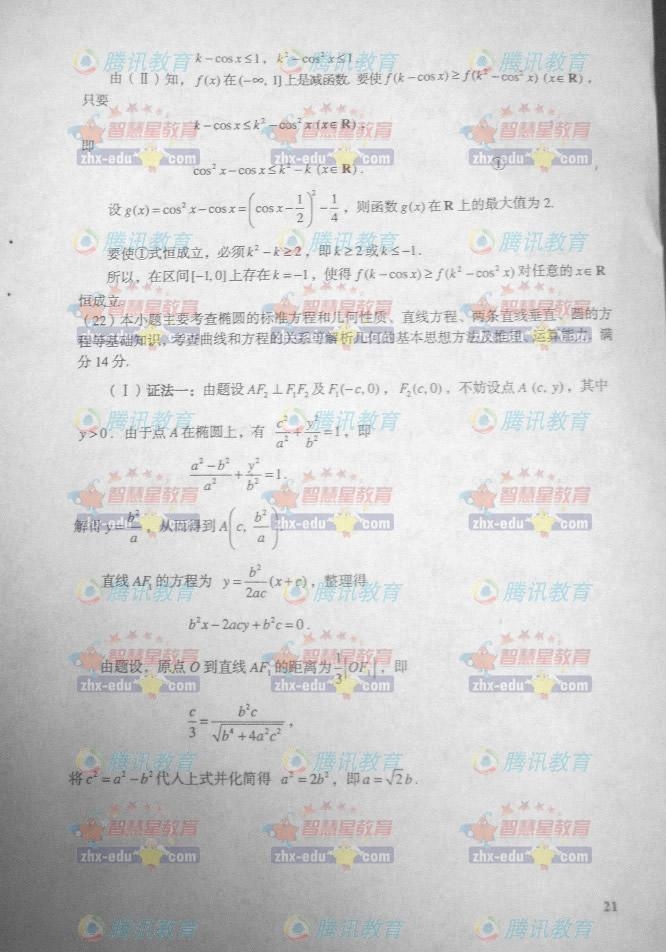 k-cos x≤1, k²-cos² x≤1.
由(Ⅱ)知, f(x)在(-∞, 1]上是减函数. 要使f(k-cos x)≥f(k²-cos² x) (x∈R),
只要
k-cos x≤k²-cos² x (x∈R).
即
cos² x-cos x≤k²-k (x∈R). ①
设g(x)=cos² x-cos x=(cos x-1/2)²-1/4, 则函数g(x)在R上的最大值为2.
要使①式恒成立, 必须k²-k≥2, 即k≥2或k≤-1.
所以, 在区间[-1, 0]上存在k=-1, 使得f(k-cos x)≥f(k²-cos² x)对任意的x∈R
恒成立.
(22)本小题主要考查椭圆的标准方程和几何性质、直线方程、两条直线垂直、圆的方
程等基础知识, 考查曲线和方程的关系等解析几何的基本思想方法及推理、运算能力. 满
分14分.
(Ⅰ)证法一: 由题设AF₂⊥F₁F₂及F₁(-c, 0), F₂(c, 0), 不妨设点A (c, y), 其中
y>0. 由于点A在椭圆上, 有 c²/a²+y²/b²=1, 即
(a²-b²)/a²+y²/b²=1.
解得y=b²/a, 从而得到A(c, b²/a).
直线AF₁的方程为 y=b²/2ac(x+c), 整理得
b²x-2acy+b²c=0.
由题设, 原点O到直线AF₁的距离为1/3|OF₁|, 即
c/3=b²c/√(b⁴+4a²c²),
将c²=a²-b²代人上式并化简得 a²=2b², 即a=√2b.
21
腾讯教育
智慧星教育
zhx-edu.com